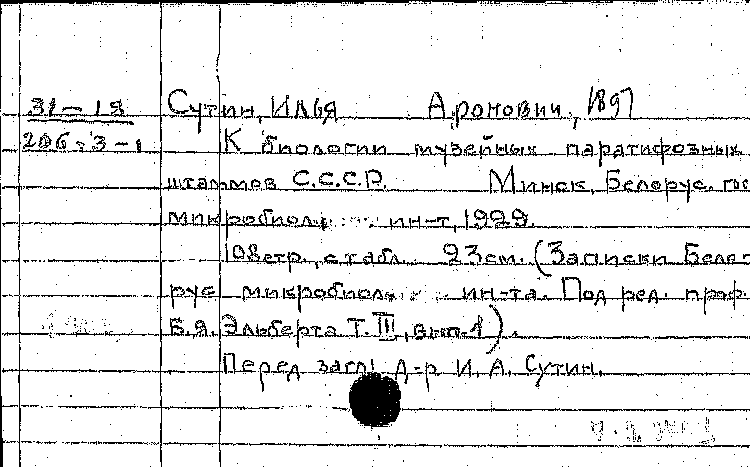 31-18 Сутин, Илья Аронович, 1897
206:3-1 К биологии музейных паратифозных
штаммов С.С.С.Р. Минск, Белорус. гос
микробиол. ин-т, 1929.
108стр., с табл. 23см. (Записки Бело
рус микробиол. ин-та. Под ред. проф.
Б.Я. Эльберта Т. III, вып-1).
Перед загл: д-р И. А. Сутин.